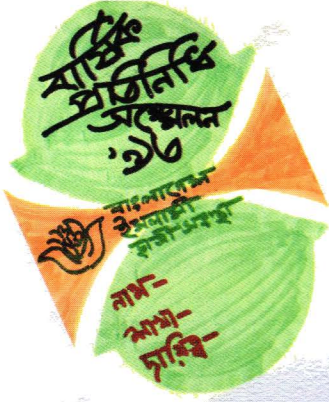 বার্ষিক
প্রতিনিধি
সম্মেলন
'৯৬
বাংলাদেশ
ইসলামী
ছাত্রী সংস্থা
নাম-
শাখা-
দায়িত্ব-